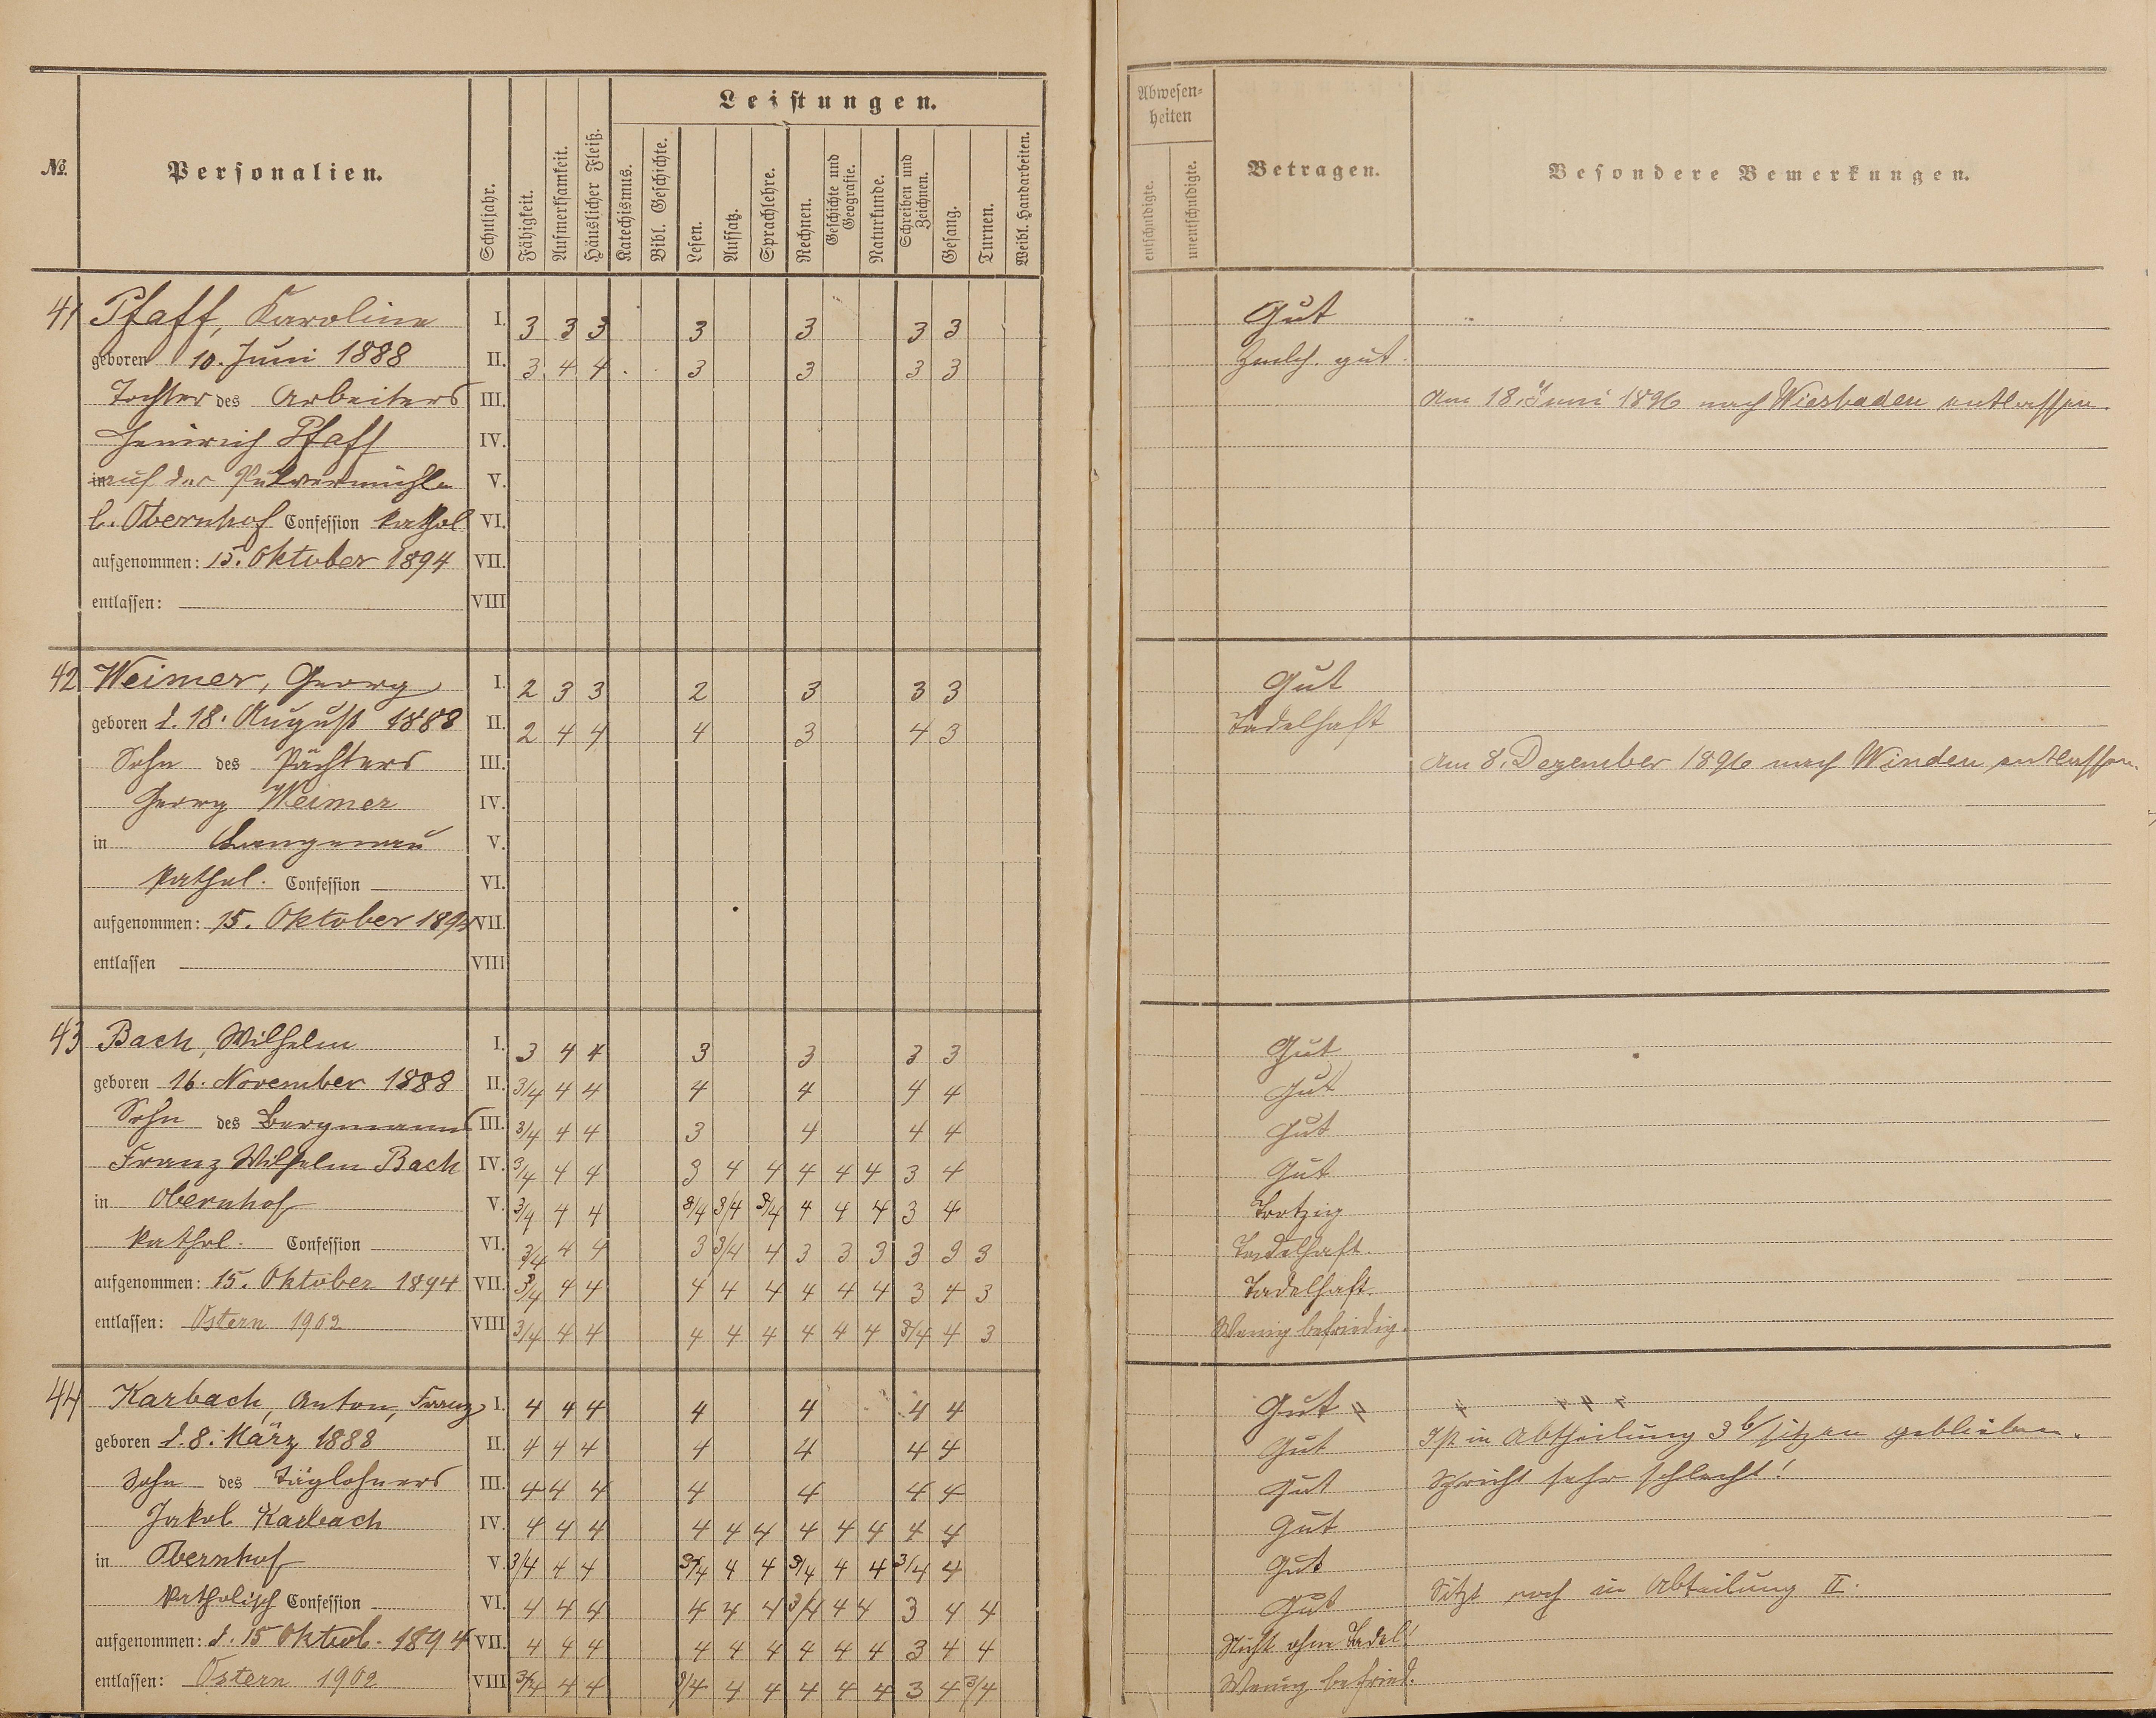 Leistungen.
Abwesen=
heiten
№
Personalien.
Schuljahr.
Fähigkeit.
Aufmerksamkeit.
Häuslicher Fleiß.
Katechismus.
Bibl. Geschichte.
Lesen.
Aufsatz.
Sprachlehre.
Rechnen.
Geschichte und
Geografie.
Naturkunde.
Schreiben und
Zeichnen.
Gesang.
Turnen.
Weibl. Handarbeiten.
entschuldigte.
unentschuldigte.
Betragen.
Besondere Bemerkungen.
41 Pfaff, Karoline I. 3 3 3 3 3 3 3 Gut
geboren 10. Juni 1888 II. 3 4 4 3 3 3 3 Zmlch. gut.
Tochter des Arbeiters III. Am 18. Juni 1896 nach Wiesbaden entlassen.
Heinrich Pfaff IV.
in auf der Pulvermühle V.
b. Obernhof Confession kathol VI.
aufgenommen: 15. Oktober 1894 VII.
entlassen: VIII
42 Weimer, Georg I. 2 3 3 2 3 3 3 Gut
geboren d. 18. August 1888 II. 2 4 4 4 3 4 3 Tadelhaft
Sohn des Pächters III. Am 8. Dezember 1896 nach Winden entlassen.
Georg Weimer IV.
in Langenau V.
kathol. Confession VI.
aufgenommen: 15. Oktober 1894 VII.
entlassen VIII
43 Bach, Wilhelm I. 3 4 4 3 3 3 3 Gut
geboren 16. November 1888 II. 3/4 4 4 4 4 4 4 Gut
Sohn des Bergmanns III. 3/4 4 4 3 4 4 4 Gut
Franz Wilhelm Bach IV. 3/4 4 4 3 4 4 4 4 4 3 4 Gut
in Obernhof V. 3/4 4 4 3/4 3/4 3/4 4 4 4 3 4 Trotzig
kathol. Confession VI. 3/4 4 4 3 3/4 4 3 3 3 3 3 3 Tadelhaft.
aufgenommen: 15. Oktober 1894 VII. 3/4 4 4 4 4 4 4 4 4 3 4 3 Tadelhaft.
entlassen: Ostern 1902 VIII 3/4 4 4 4 4 4 4 4 4 3/4 4 3 Wenig befriedig.
44 Karbach, Anton, Franz I. 4 4 4 4 4 4 4 Gut
geboren d. 8. März 1888 II. 4 4 4 4 4 4 4 Gut Ist in Abtheilung 3 b sitzen geblieben.
Sohn des Taglöhners III. 4 4 4 4 4 4 4 Gut Spricht sehr schlecht!
Jakob Karbach IV. 4 4 4 4 4 4 4 4 4 4 4 Gut
in Obernhof V. 3/4 4 4 3/4 4 4 3/4 4 4 3/4 4 Gut
katholisch Confession VI. 4 4 4 4 4 4 3/4 4 4 3 4 4 Gut Sitzt noch in Abteilung II.
aufgenommen: d. 15 Oktob. 1894 VII. 4 4 4 4 4 4 4 4 4 3 4 4 Nicht ohne Tadel!
entlassen: Ostern 1902 VIII 3/4 4 4 3/4 4 4 4 4 4 3 4 3/4 Wenig befried.